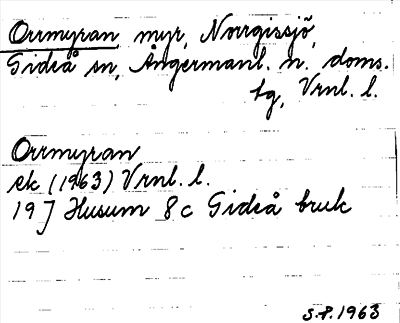 Orrmyran myr, Norrgissjö,
Gideå sn, Ångermanl. n. doms.
tg, Vrnl. l.
Orrmyran
ek (1963) Vrnl. l.
19 J Husum 8 c Gideå bruk
S.P. 1963